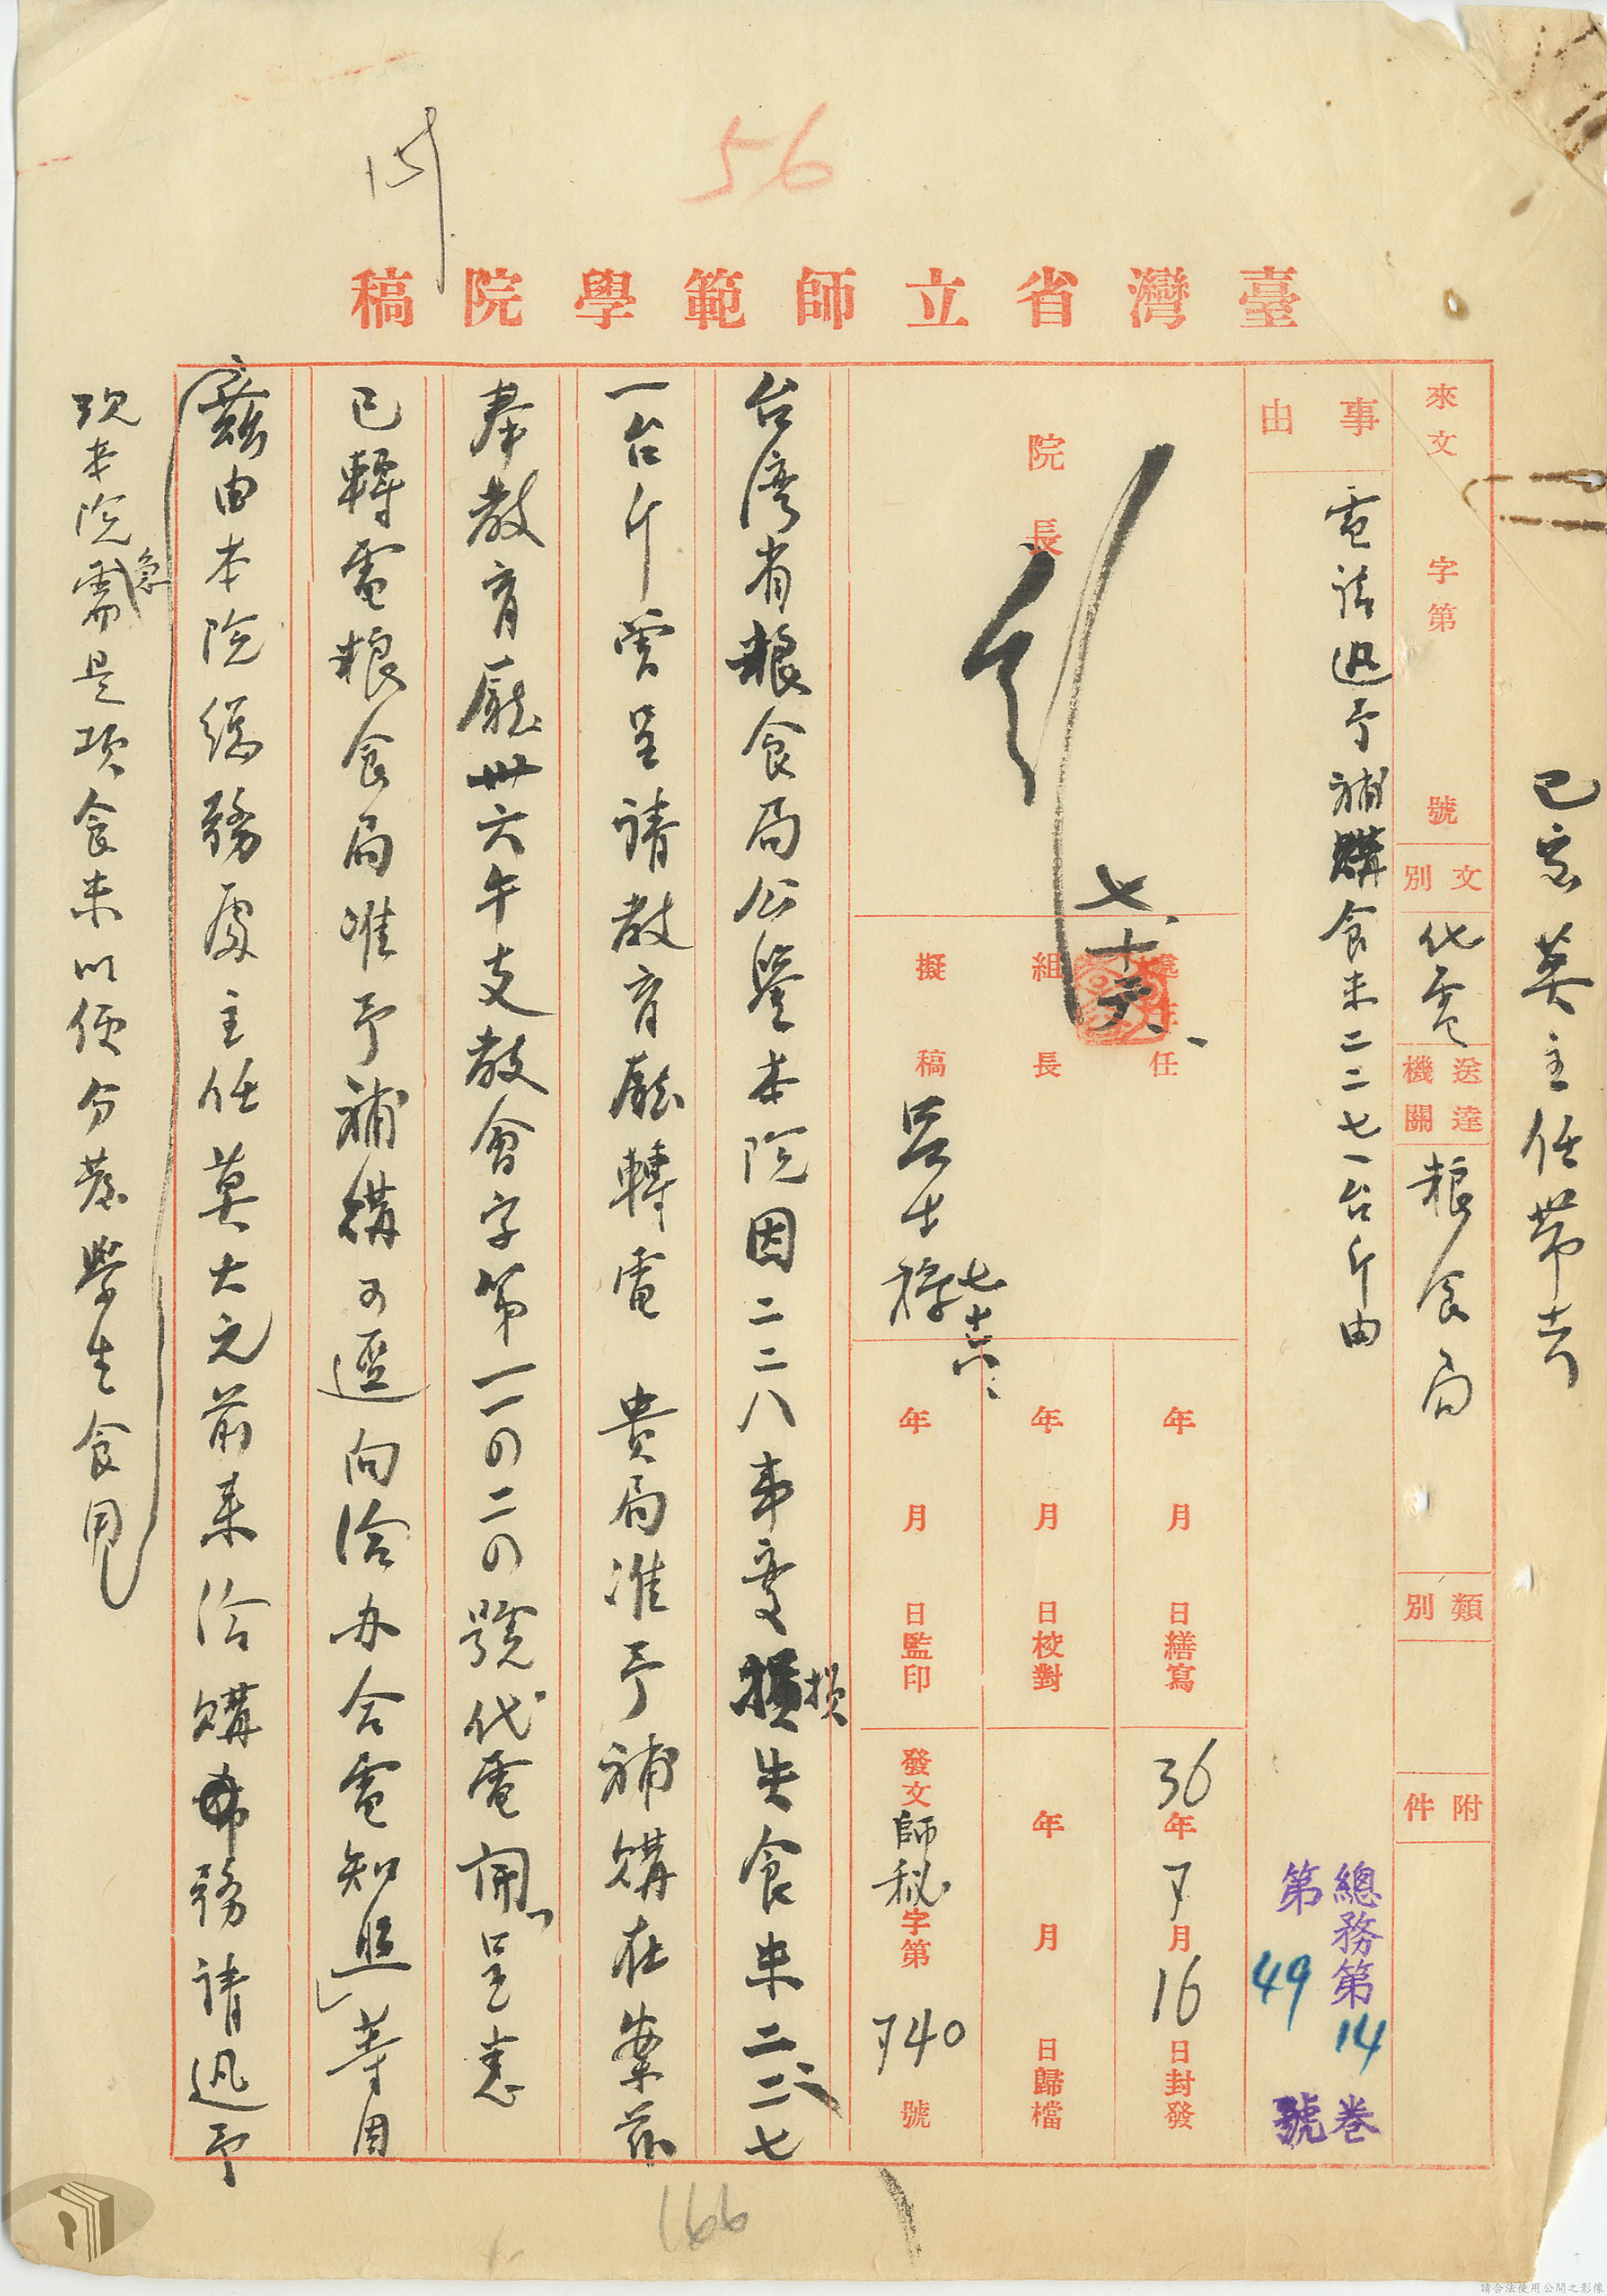 56
臺灣省立師範學院稿
已交莫主任帶去
來文 字第 號
文別 代電
送達機關 粮食局
類別
附件
事由
電請迅予補購食米二二七一台斤由
總務第14卷
第49號
院長
七、十六、
處主任
組長
擬稿 吕士 七、十六、
年 月 日繕寫
年 月 日校對
年 月 日監印
36年7月16日封發
年 月 日歸檔
發文師秘字第740號
台湾省粮食局公鑒本院因二二八事变損失食米二二七
損
一台斤曾呈請教育廳轉電 貴局准予補購在案茲
奉教育廳卅六午支教會字第一一四二四號代電開「呈悉
已轉電粮食局准予補購可逕向洽办合電知照」等因
茲由本院總務處主任莫大元前来洽購希務請迅予
現本院需是項食米以便分發學生食用
急
166
請合法使用公開之影像